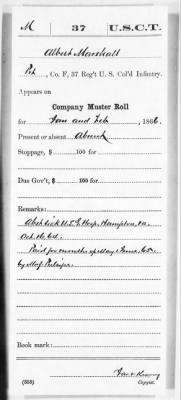 M | 37 | U.S.C.T.
Albert Marshall
Pvt, Co. F, 37 Reg't U. S. Col'd Infantry.
Appears on
Company Muster Roll
for Jan and Feb, 1866.
Present or absent Absent
Stoppage, $ 100 for
Due Gov't, $ 100 for
Remarks:
Abst sick U.S. G. Hosp. Hampton, Va.
Oct. 16, 64.
Paid for months of May & June, 65
by Maj.
Book mark:
(858)
Copyist.